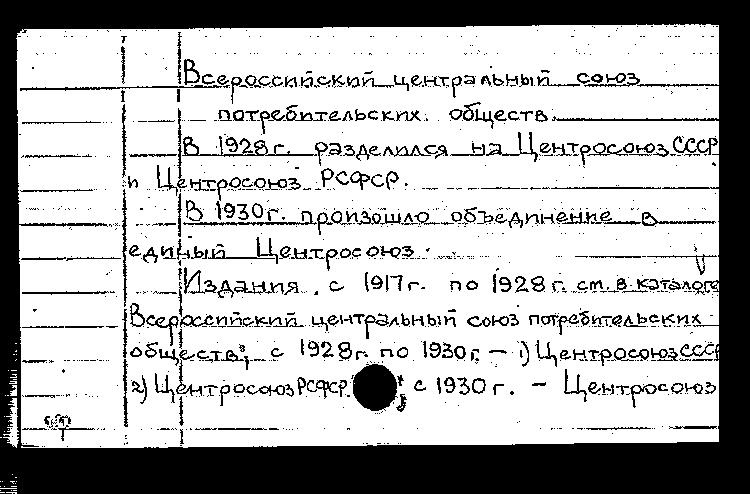 Всероссийский центральный союз
потребительских обществ.
В 1928 г. разделился на Центросоюз СССР
и Центросоюз РСФСР.
В 1930 г. произошло объединение в
единый Центросоюз.
Издания с 1917 г. по 1928 г. см. в каталоге
Всероссийский центральный союз потребительских
обществ", с 1928 г. по 1930 г. – 1) Центросоюз СССР
2) Центросоюз РСФСР. ; с 1930 г. – Центросоюз